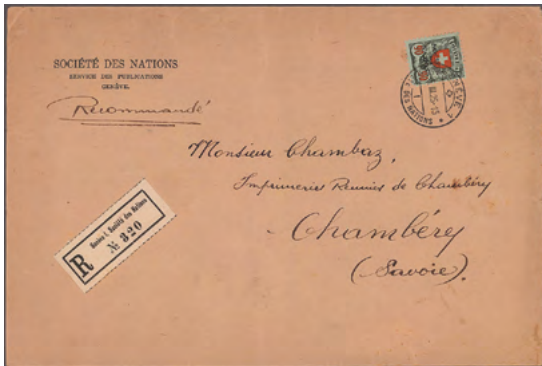 SOCIÉTÉ DES NATIONS
SERVICE DES PUBLICATIONS
GENÈVE.
Recommandé
Monsieur Chambaz,
Imprimeries Reunies de Chambéry
Chambéry
(Savoie).
R
Genève 1, Société des Nations
№ 320
GENÈVE
1
DES NATIONS